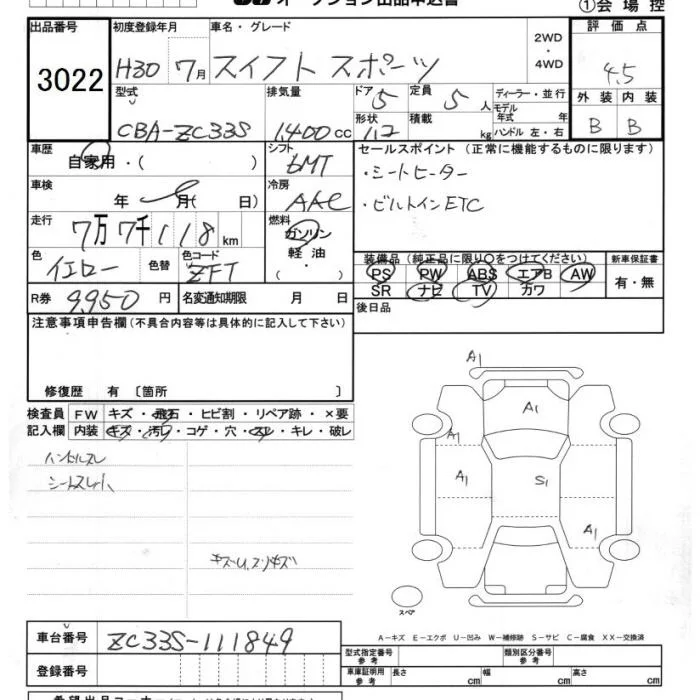 オークション出品申込書
①会場控
出品番号 3022
初度登録年月 H30 7月
車名・グレード スイフト スポーツ
2WD・4WD
評価点 4.5
外装 B 内装 B
型式 CBA-ZC33S
排気量 1,400cc
ドア 5 形状 1,2
定員 5人 積載 kg
ディーラー・並行
モデル年式 年
ハンドル 左・右
車歴 自家用・( )
シフト 6MT
セールスポイント(正常に機能するものに限ります)
・シートヒーター
・ビルトインETC
車検 年 月( 日)
冷房 AAC
走行 7万7千118km
燃料 ガソリン 軽油・( )
色 イエロー 色替
色コード ZFT
装備品(純正品に限り○をつけてください)
PS PW ABS エアB AW
SR ナビ TV カワ
新車保証書 有・無
R券 9,950円
名変通知期限 月 日
後日品
注意事項申告欄(不具合内容等は具体的に記入して下さい)
修復歴 有 〔箇所 〕
検査員記入欄
FW キズ・飛石・ヒビ割・リペア跡・×要
内装 キズ・汚レ・コゲ・穴・スレ・キレ・破レ
ハンドルスレ
A1
A1
A1
A1
S1
A1
スペア
A-キズ E-エクボ U-凹み W-補修跡 S-サビ C-腐食 XX-交換済
車台番号 ZC33S-111849
登録番号
型式指定番号 参考
類別区分番号 参考
車庫証明用 参考 長さ cm 幅 cm 高さ cm